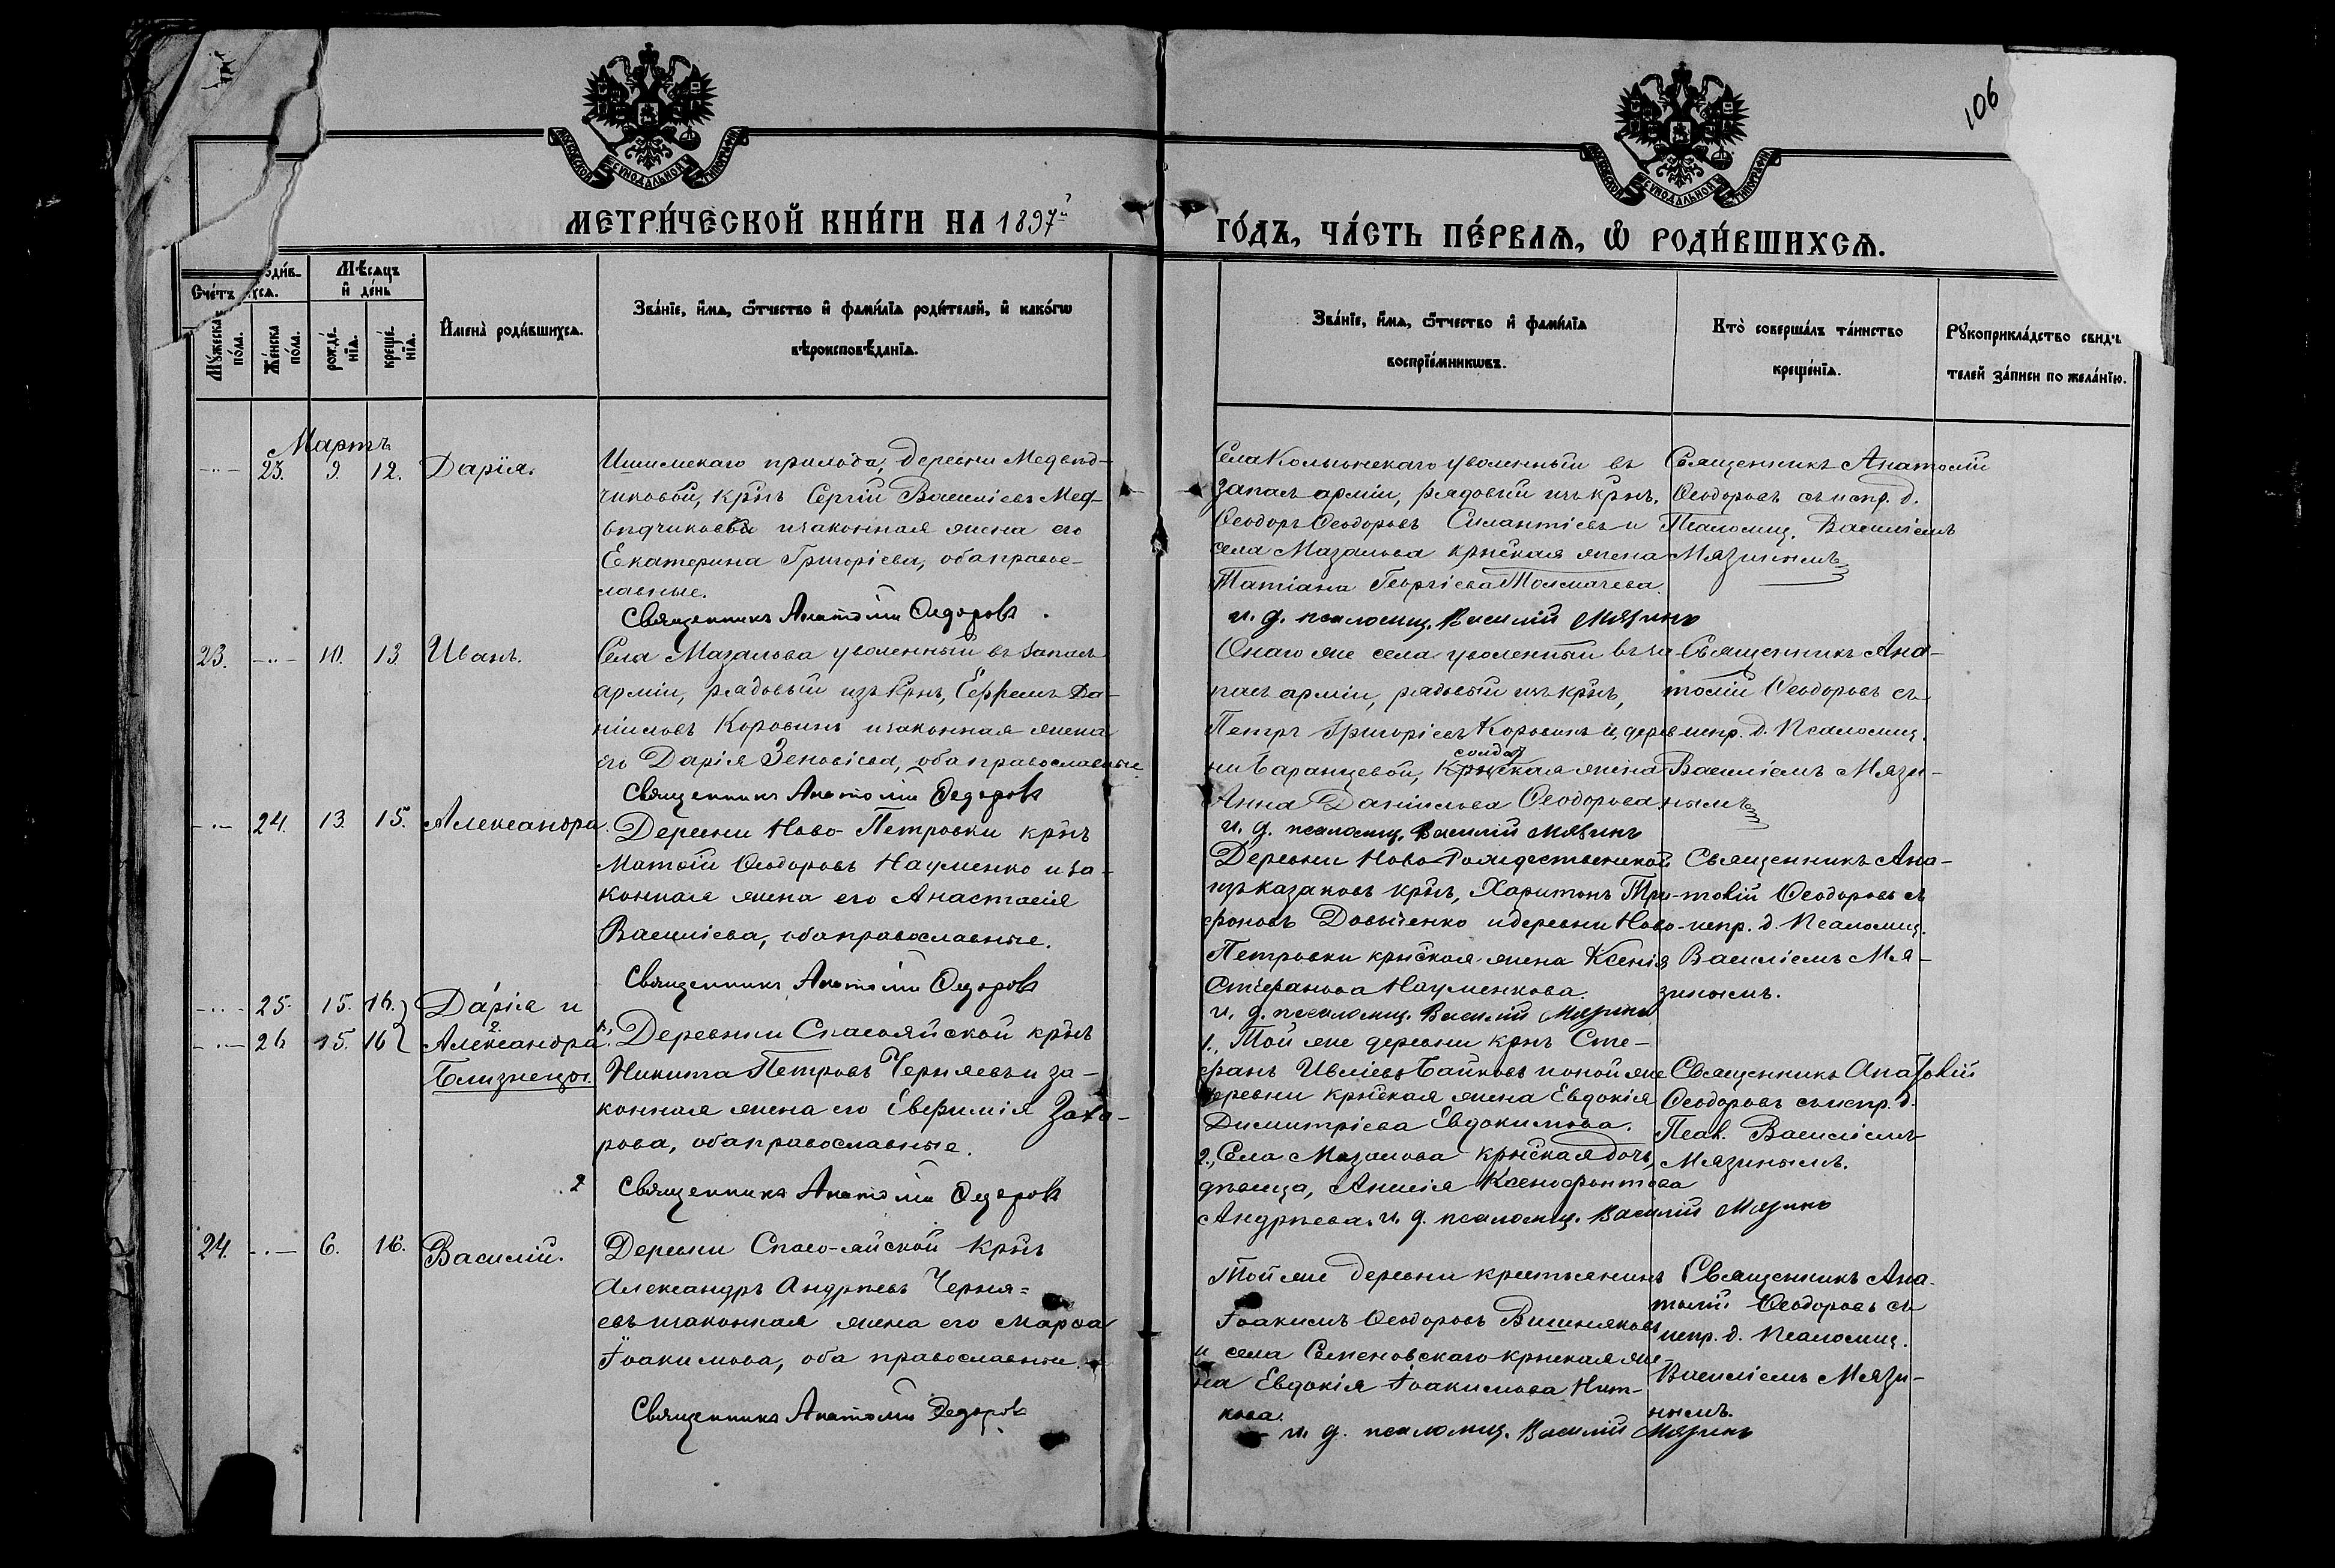 106
МЕТРИ́ЧЕСКОЙ КНИ́ГИ НА 1897й
ГО́ДЪ, ЧА́СТЬ ПЕ́РВАѦ, Ѡ҆ РОДИ́ВШИХСѦ.
Счéтъ
Мѣ́сяцъ и҆ де́нь
Мꙋ́жеска по́ла.
Же́нска по́ла.
рожде́нїѧ.
креще́нїѧ.
И҆мена̀ роди́вшихсѧ.
Зва́нїе, и҆́мѧ, ѻ҆́тчество и҆ фами́лїѧ роди́телей, и҆ како́гѡ
вѣроисповѣ́данїѧ.
Зва́нїе, и҆́мѧ, ѻ҆́тчество и҆ фами́лїѧ
воспрїе́мникѡвъ.
Кто̀ соверша́лъ та́инство
креще́нїѧ.
Рꙋкоприкла́дство свидѣ
телей за́писи по жела́нїю.
Мартъ
23. 9. 12. Дарія.
Ишимскаго прихода, деревни Медвѣд-
чиковой, крн̃ъ Сергій Василіевъ Мед-
вѣдчиковъ и законная жена его
Екатерина Григоріева, оба право-
славные.
Священникъ Анатолій Ѳедоровъ
уволенный въ
запасъ арміи, рядовый изъ крн̃ъ,
Ѳеодоръ Ѳеодоровъ Силантіевъ и
села Мазалова крн̃ская жена
Татіана Георгіева Толмачева.
и. д. псаломщ. Василій Мязинъ
Священникъ Анатолій
Ѳеодоровъ съ испр. д.
Псаломщ. Василіемъ
Мязинымъ
23. 10. 13. Иванъ.
Села Мазалова уволенный въ запасъ
арміи, рядовый изъ крн̃ъ, Ефремъ Да-
ніиловъ Коровинъ и законная жена
его Дарія Зеновіева, оба православные
Священникъ Анатолій Ѳедоровъ
Онаго же села уволенный въ за-
пасъ арміи, рядовый изъ крн̃ъ,
Петръ Григоріевъ Коровинъ и дерев
ни Баранцевой, солдат жена
Анна Даніилова Ѳеодорова.
и. д. псаломщ. Василій Мязинъ
Священникъ Ана-
толій Ѳеодоровъ съ
испр. д. Псаломщ.
Василіемъ Мязи-
нымъ
24. 13. 15. Александра.
Деревни Ново-Петровки крн̃ъ
Матѳій Ѳеодоровъ Науменко и за-
конная жена его Анастасія
Василіева, оба православные.
Священникъ Анатолій Ѳедоровъ
Деревни Ново-Рождественской
изъ казаковъ крн̃ъ, Харитонъ Три-
фоновъ Довыченко и деревни Ново-
Петровки крн̃ская жена Ксенія
Стефанова Науменкова.
и. д. псаломщ. Василій Мязинъ
Священникъ Ана-
толій Ѳеодоровъ съ
испр. д. Псаломщ.
Василіемъ Мя-
зинымъ.
25. 15. 16. Дарія и
26. 15. 16 2. Александра.
Близнецы.
1., Деревни Спасояйской крн̃ъ
Никита Петровъ Черняевъ и за-
конная жена его Евѳимія Заха-
рова, оба православные.
2 Священникъ Анатолій Ѳедоровъ
1., Той же деревни крн̃ъ Сте-
фанъ Байковъ и оной же
деревни крн̃ская жена Евдокія
Димитріева Евдокимова.
2., Села Мазалова крн̃ская дочь,
дѣвица, Анисія Ксенофонтова
Андреева. и. д. псаломщ. Василій Мязинъ
Священникъ Анатолій
Ѳеодоровъ съ испр. д.
Псал. Василіемъ
Мязинымъ.
24. 6. 16. Василій.
Деревни Спасо-яйской крн̃ъ
Александръ Андреевъ Черня=
евъ и законная жена его Марѳа
Іоакимова, оба православные.
Священникъ Анатолій Ѳедоровъ
Той же деревни крестьянинъ
Іоакимъ Ѳеодоровъ Вишняковъ
и села Семеновскаго крн̃ская же-
на Евдокія Іоакимова Нит-
кова.
и. д. псаломщ. Василій Мязинъ
Священникъ Ана-
толій Ѳеодоровъ съ
испр. д. Псаломщ.
Василіемъ Мязи-
нымъ.